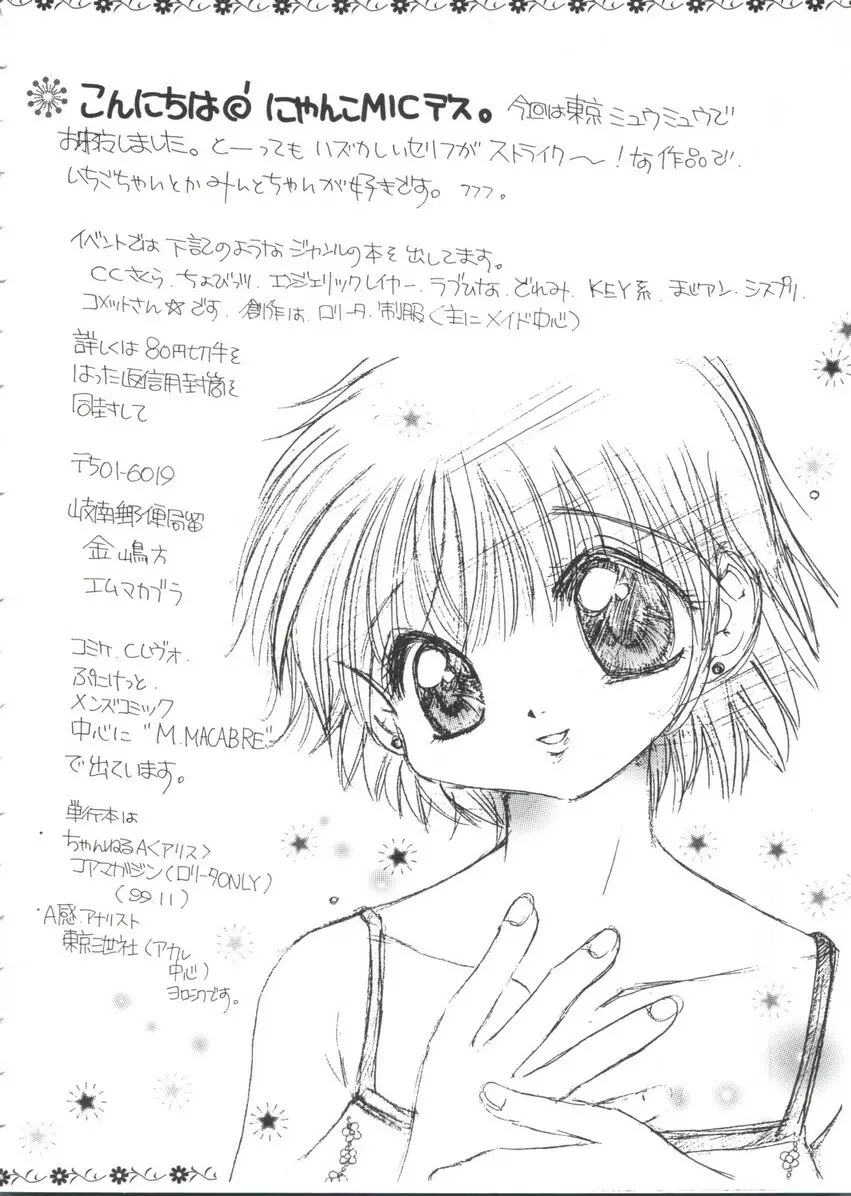 こんにちは にゃんこMICデス。今回は東京ミュウミュウで
お邪魔しました。とーっても ハズかしいセリフが ストライク〜!な作品で、
いちごちゃんとかみんとちゃんが好きです。フフフ。
イベントでは 下記のようなジャンルの本を出してます。
CCさくら、ちょびっツ、エンジェリックレイヤー、ラブひな、どれみ、KEY系、まじアン、シスプリ、
コメットさん☆です、創作は、ロリータ、制服(主にメイド中心)
詳しくは80円切手を
はった返信用封筒を
同封して
〒501-6019
岐南郵便局留
金嶋方
エムマカブラ
コミケ、Cレヴォ、
ぷにけっと、
メンズコミック
中心に "M.MACABRE"
で出ています。
・単行本は
ちゃんねるA〈アリス〉
コアマガジン(ロリータONLY)
(99.11)
・A感アナリスト
東京三世社(アナル
中心)
ヨロシクです。